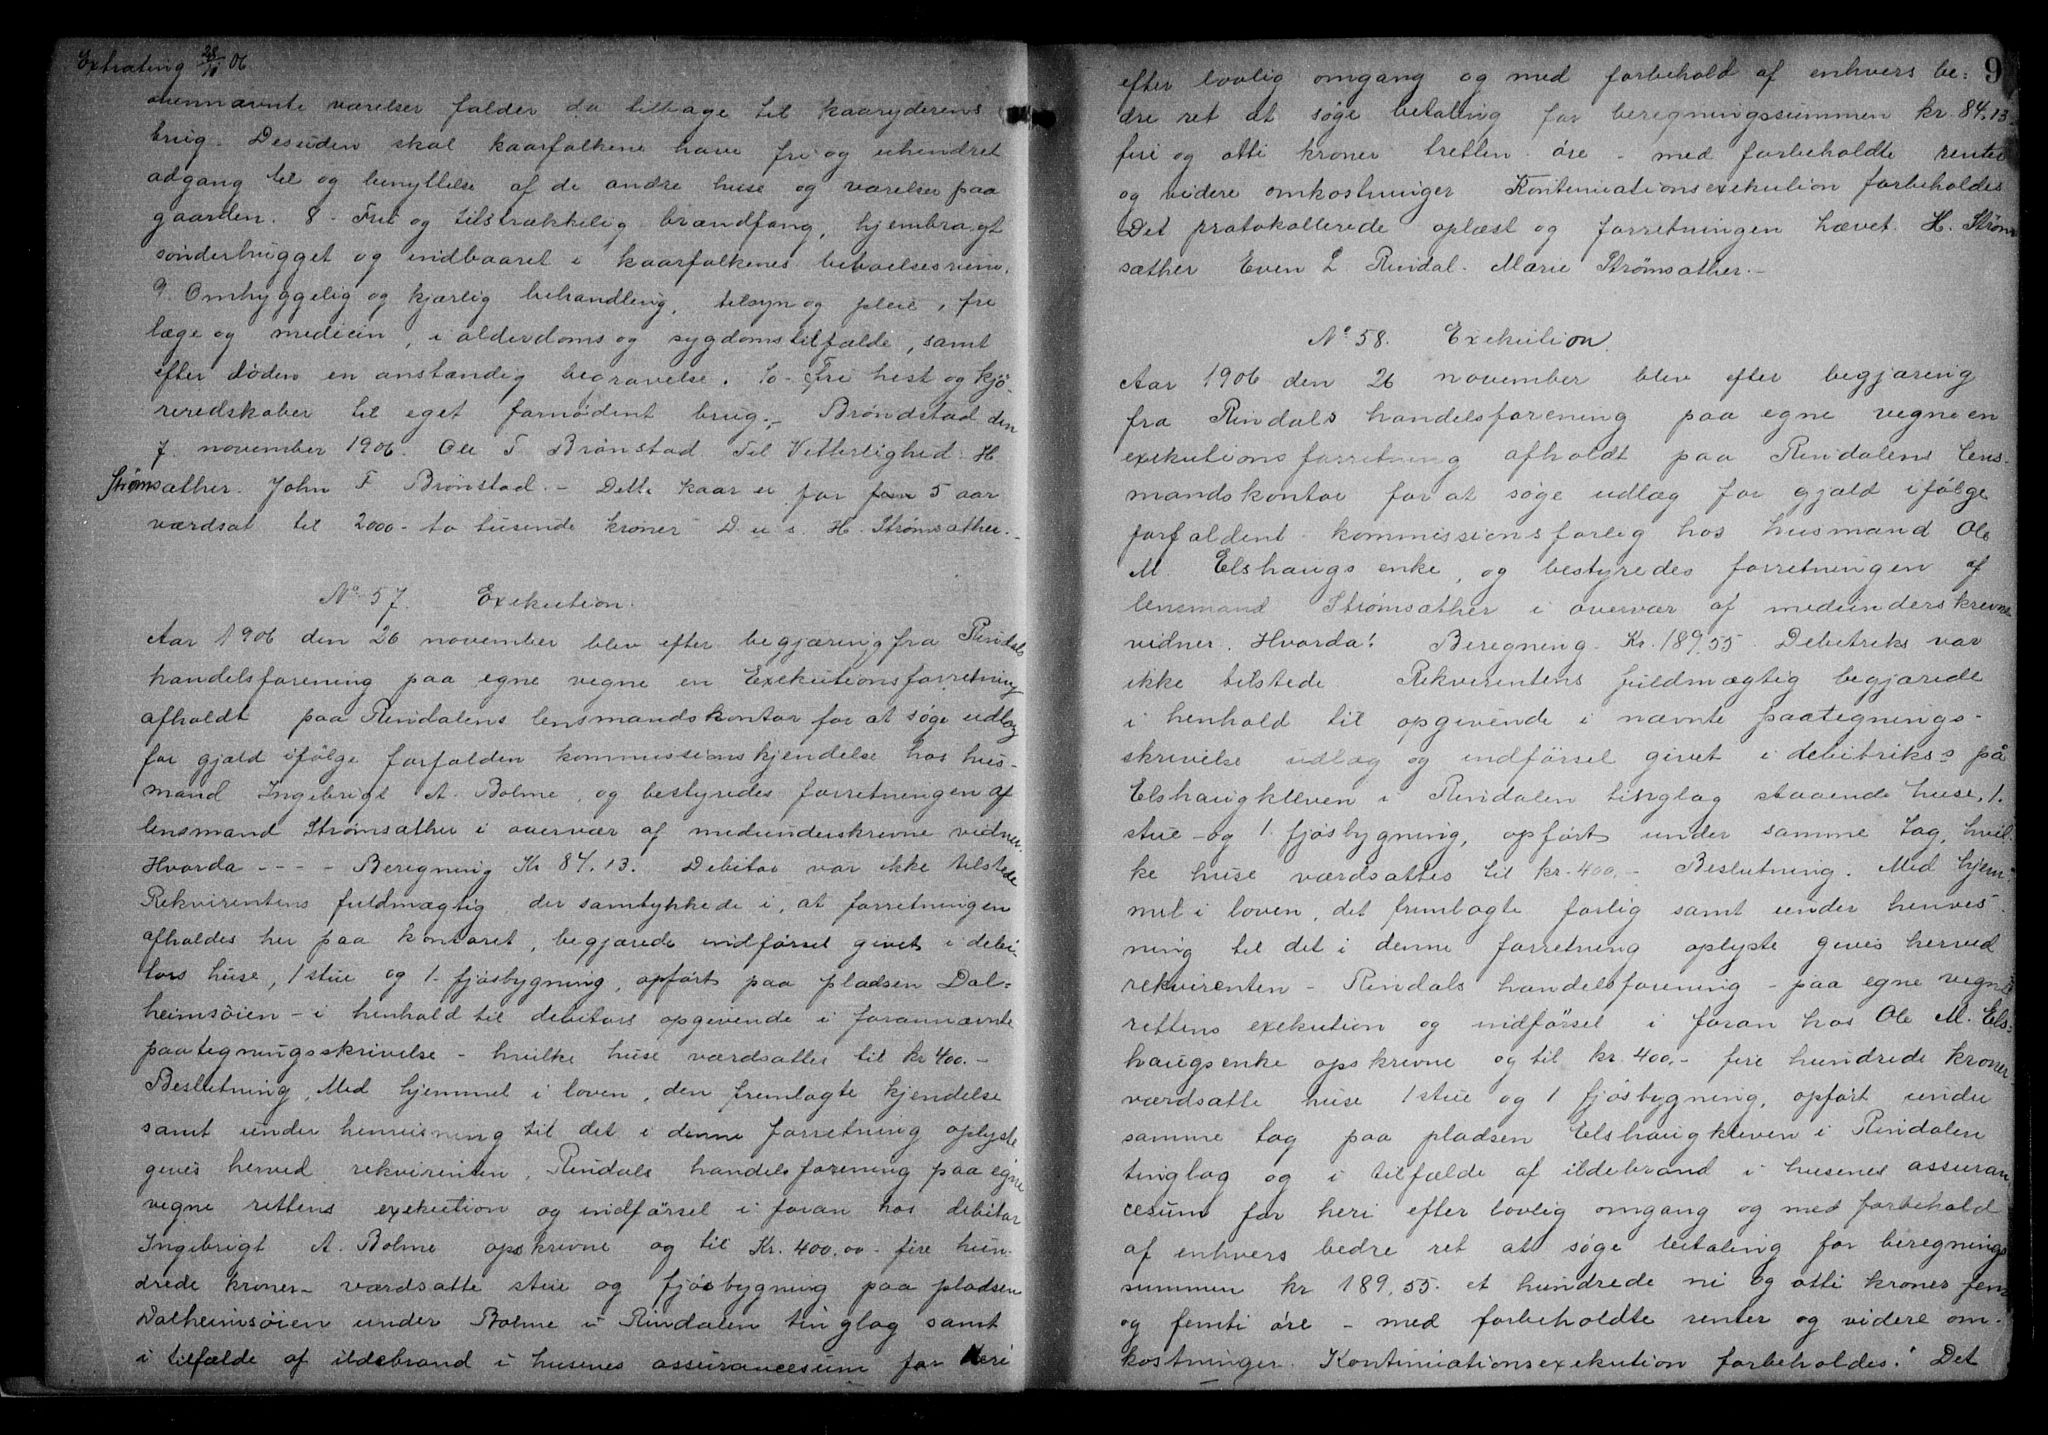 Extrating 28/11 06
ovennævnte værelser falder da tilbage til kaaryderens
brug. Desuden skal kaarfolkene have fri og uhindret
adgang til og benyttelse af de andre huse og værelser paa
gaarden. 8 - Frit og tilstrækkelig brændfang, hjembragt
sønderhugget og indbaaret i kaarfolkenes beboelsesrum.
9. Omhyggelig og kjærlig behandling, tilsyn og pleie, fri
læge og medicin, i alderdoms og sygdomstilfælde, samt
efter døden en anstændig begravelse. 10 - Fri hest og kjø-
reredskaber til eget fornødent brug. - Brøndstad den
7. november 1906. Ole T. Brønstad. Til Vitterlighed: H.
Strømsæther. John F Brønstad. - Dette kaar er for 5 aar
værdsat til 2000 - to tusende kroner D. u. s. H. Strømsæther. -
No 57. Exekution.
Aar 1906 den 26 november blev efter begjæring fra Rindals
handelsforening paa egne vegne en Exekutionsforretning
afholdt paa Rindalens lensmandskontor for at søge udlæg
for gjæld ifølge forfalden kommissionskjendelse hos hus-
mand Ingebrigt A. Bolme, og bestyredes forretningen af
lensmand Strømsæther i overvær af medunderskrevne vidner.
Hvorda - - - Beregning Kr 84.13. Debitor var ikke tilstede
Rekvirentens fuldmægtig, der samtykkede i, at forretningen
afholdes her paa kontoret, begjærede indførsel givet i debi-
tors huse, 1 stue og 1. fjøsbygning, opført paa pladsen Dal=
heimsøien - i henhold til debitors opgivende i forannævnte
paategningsskrivelse - hvilke huse værdsattes til kr 400. -
Beslutning, Med hjemmel i loven, den fremlagte kjendelse
samt under henvisning til det i denne forretning oplyste
gives herved rekvirenten, Rindals handelsforening paa egne
vegne rettens exekution og indførsel i foran hos debitor
Ingebrigt A. Bolme opskrevne og til Kr. 400,00 - fire hun-
drede kroner - værdsatte stue og fjøsbygning paa pladsen
Dalheimsøien under Bolme i Rindalen tinglag samt
i tilfælde af ildebrand i husenes assurancesum for heri
9
efter lovlig omgang og med forbehold af enhvers be=
dre ret at søge betaling for beregningssummen kr. 84.13
firi og otti kroner tretten øre - med forbeholdte renter
og videre omkostninger Kontinuationsexekution forbeholdes
Det protokollerede oplæst og forretningen hævet. H. Strøm
sæther Even L Rindal. Marie Strømsæther. -
No 58. Exekution.
Aar 1906 den 26 november blev efter begjæring
fra Rindals handelsforening paa egne vegne en
exekutionsforretning afholdt paa Rindalens lens-
mandskontor for at søge udlæg for gjæld ifølge
forfaldent kommissionsforlig hos husmand Ole
M. Elshaugs enke, og bestyredes forretningen af
lensmand Strømsæther i overvær af medunderskrevne
vidner. Hvorda! Beregning. Kr. 189,55. Debitriks var
ikke tilstede Rekvirentens fuldmægtig begjærede
i henhold til opgivende i nævnte paategnings-
skrivelse udlæg og indførsel givet i debitriks's på
Elshaugkleven i Rindalen tinglag staaende huse, 1.
stue - og 1. fjøsbygning, opført under samme tag, hvil-
ke huse værdsattes til kr. 400. - Beslutning. Med hjem-
mel i loven, det fremlagte forlig samt under henvis-
ning til det i denne forretning oplyste gives herved
rekvirenten - Rindals handelsforening - paa egne vegne
rettens exekution og indførsel i foran hos Ole M. Els-
haugsenke opskrevne og til kr. 400, - fire hundrede kroner
værdsatte huse 1 stue og 1 fjøsbygning, opført under
samme tag paa pladsen Elshaugkleven i Rindalen
tinglag og i tilfælde af ildebrand i husenes assuran
cesum for heri efter lovlig omgang og med forbehold
af enhvers bedre ret at søge betaling for beregnings
summen kr 189,55. et hundrede ni og otti kroner fem
og femti øre - med forbeholdte renter og videre om-
kostninger. Kontinuationsexekution forbeholdes. Det